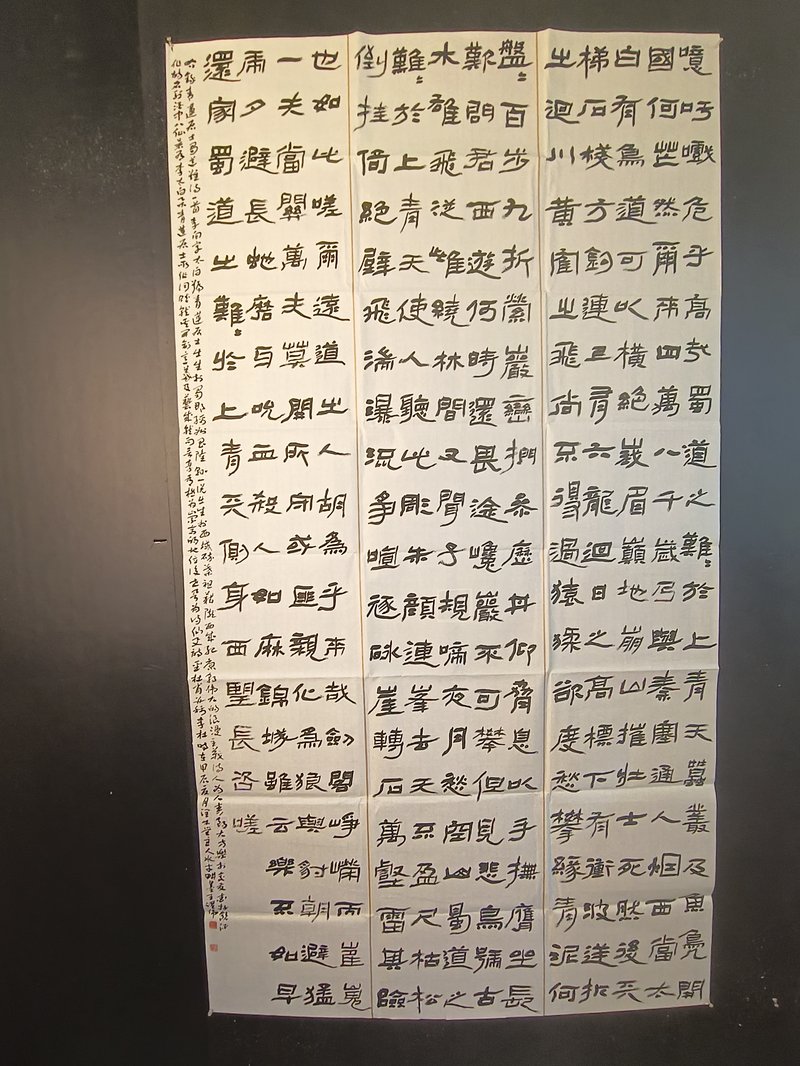 噫吁戲危乎高哉蜀道之難於上青天蠶叢及魚鳧開
國何茫然爾來四萬八千歲乃與秦塞通人烟西當太
白有鳥道可以橫絕峨眉巔地崩山摧壯士死然後天
梯石棧方鉤連上有六龍迴日之高標下有衝波逆折
之迴川黃鶴之飛尚不得過猿猱欲度愁攀緣青泥何
盤〻百步九折縈巖巒捫參歷井仰脅息以手撫膺坐長
歎問君西遊何時還畏途巉巖不可攀但見悲鳥號古
木雄飛從雌繞林間又聞子規啼夜月愁空山蜀道之
難〻於上青天使人聽此彫朱顏連峯去天不盈尺枯松
倒挂倚絕壁飛湍瀑流爭喧豗砯崖轉石萬壑雷其險
也如此嗟爾遠道之人胡為乎來哉劍閣崢嶸而崔嵬
一夫當關萬夫莫開所守或匪親化為狼與豺朝避猛
虎夕避長蛇磨牙吮血殺人如麻錦城雖云樂不如早
還家蜀道之難〻於上青天側身西望長咨嗟
青蓮居士蜀道難詩一首李白字太白號青蓮居士